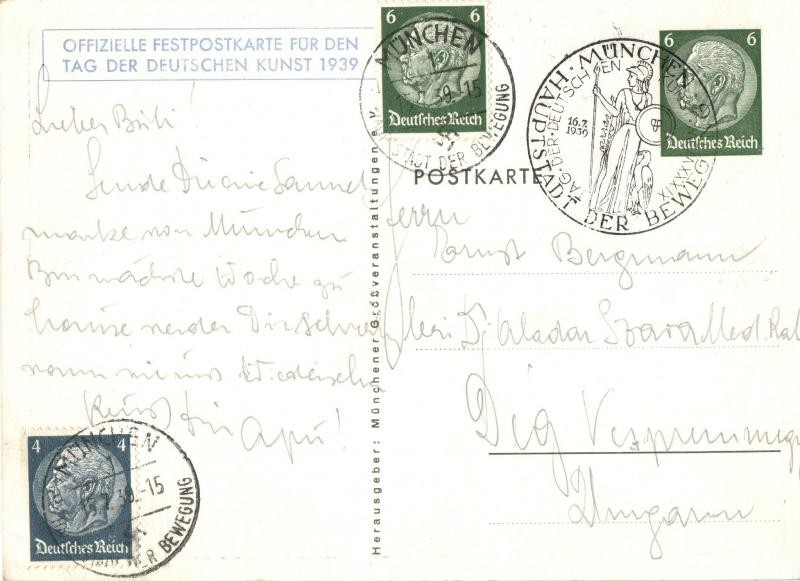 OFFIZIELLE FESTPOSTKARTE FÜR DEN
TAG DER DEUTSCHEN KUNST 1939
6 6
MÜNCHEN
1
39.-15
HAUPTSTADT DER BEWEGUNG
Deutsches Reich
MÜNCHEN
HAUPTSTADT DER BEWEGUNG
TAG DER DEUTSCHEN KUNST
16.7.
1939
6 6
Deutsches Reich
POSTKARTE
Lieber
Sende Dir eine Sammel
marke von München
Bin nächste Woche zu
Hause werde Dir schreiben
wann wir uns
Kuss Dein Apu!
Herrn
Ernst Bergmann
bei Dr Aladar
Ungarn
Herausgeber: Münchener Großveranstaltungen e.V.
4 4
MÜNCHEN
15.7.39.-15
DER BEWEGUNG
Deutsches Reich